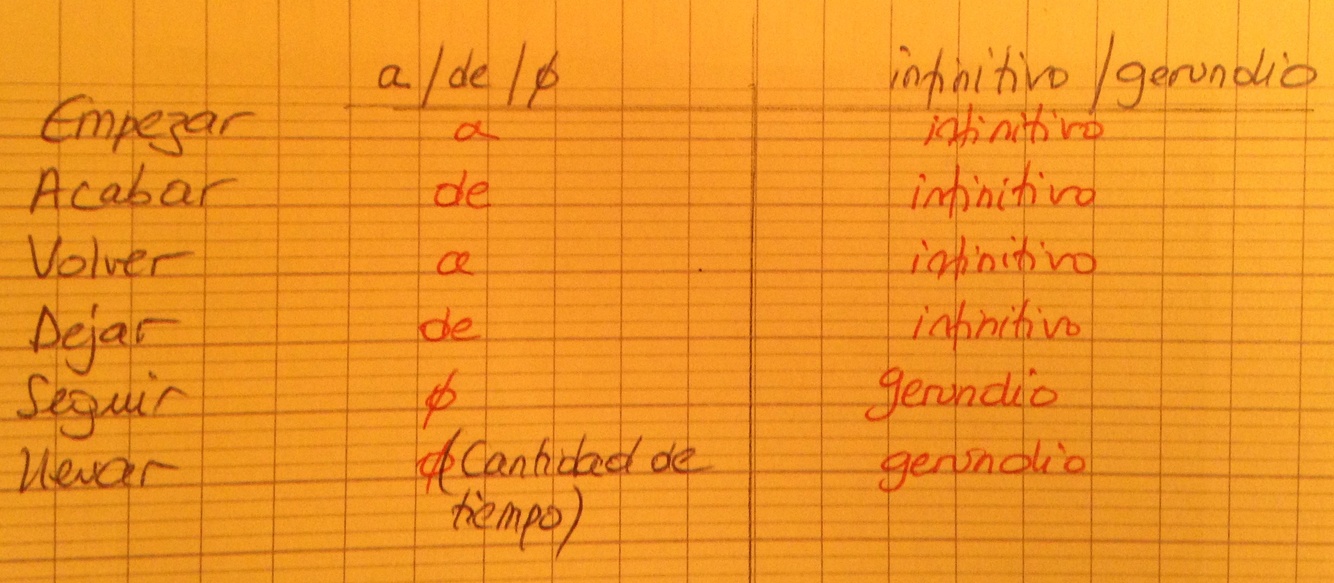 a/de/ø infinitivo/gerundio
Empezar a infinitivo
Acabar de infinitivo
Volver a infinitivo
Dejar de infinitivo
Seguir ø gerundio
Llevar ø (Cantidad de gerundio
tiempo)